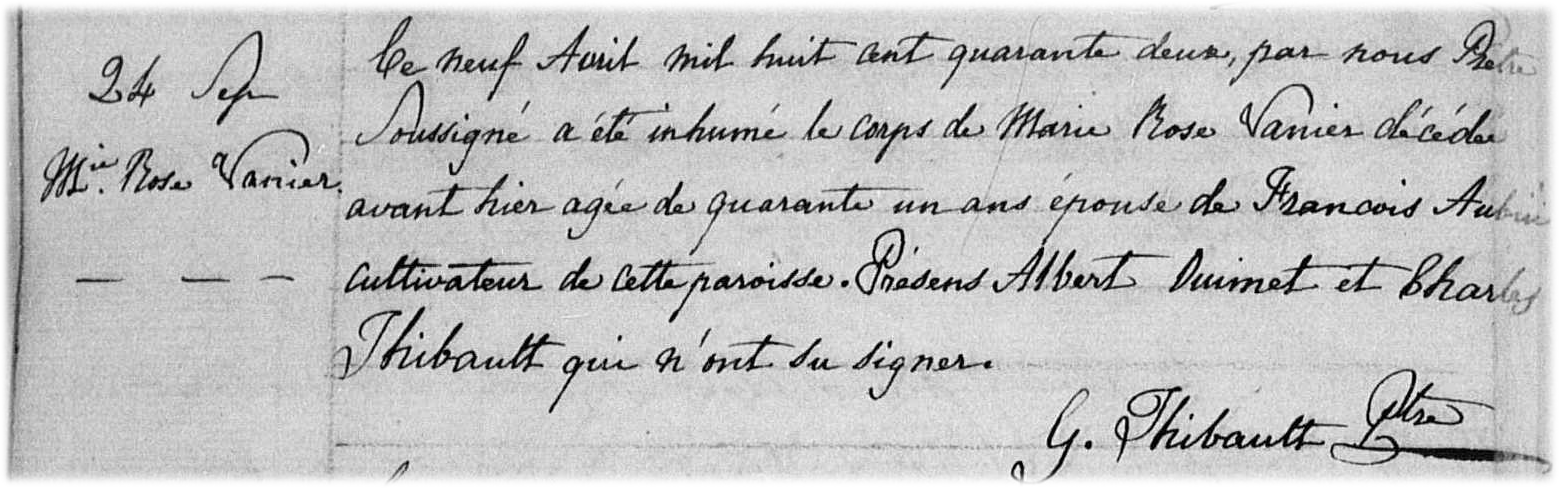 24 Sep
Mie. Rose Vanier.
— — —
Ce neuf Avril mil huit cent quarante deux, par nous Prêtre
Soussigné a été inhumé le corps de Marie Rose Vanier décédée
avant hier agée de quarante un ans épouse de François Aubin
cultivateur de cette paroisse. Présens Albert Ouimet et Charles
Thibault qui n'ont su signer.
G. Thibault Ptre